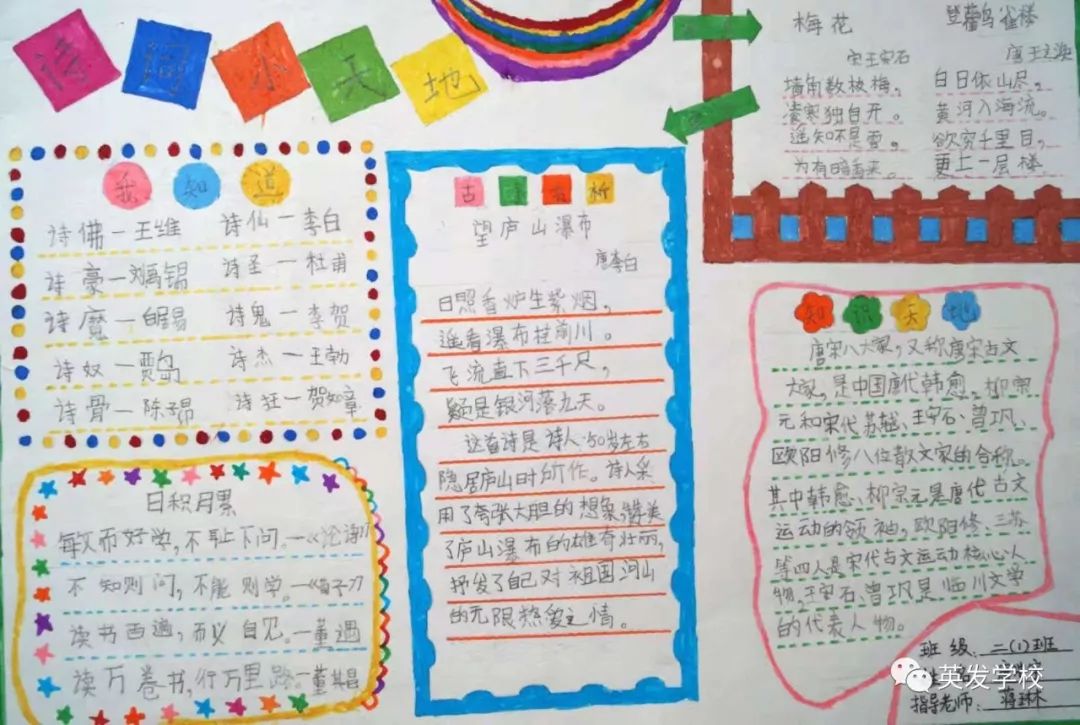 诗词小天地
我知道
诗佛一王维 诗仙一李白
诗豪一刘禹锡 诗圣一杜甫
诗魔一白居易 诗鬼一李贺
诗奴一贾岛 诗杰一王勃
诗骨一陈子昂 诗狂一贺知章
日积月累
敏而好学,不耻下问。—《论语》
不知则问,不能则学。—《荀子》
读书百遍,而义自见。—董遇
读万卷书,行万里路。—董其昌
古诗赏析
望庐山瀑布
唐李白
日照香炉生紫烟,
遥看瀑布挂前川。
飞流直下三千尺,
疑是银河落九天。
这首诗是诗人50岁左右
隐居庐山时所作。诗人采
用了夸张大胆的想象,赞美
了庐山瀑布的雄奇壮丽,
抒发了自己对祖国河山
的无限热爱之情。
梅花
宋王安石
墙角数枝梅,
凌寒独自开。
遥知不是雪。
为有暗香来。
登鹳雀楼
唐王之涣
白日依山尽,
黄河入海流。
欲穷千里目,
更上一层楼
知识天地
唐宋八大家,又称唐宋古文
大家,是中国唐代韩愈、柳宗
元和宋代苏轼、王安石、曾巩、
欧阳修八位散文家的合称。
其中韩愈、柳宗元是唐代古文
运动的领袖,欧阳修、三苏
等四人是宋代古文运动核心人
物,王安石、曾巩是临川文学
的代表人物。
班级:二(1)班
指导老师:蒋琳
英发学校